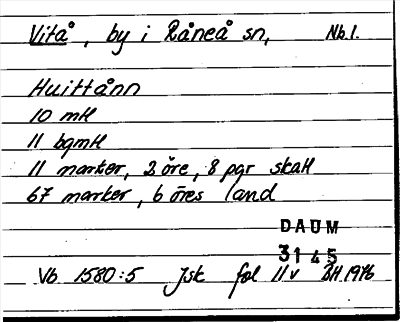 Vitå, by i Råneå sn, Nb.l.
Huittånn
10 mtl
11 bgmtl
11 marker, 2 öre, 8 pgr skatt
67 marker, 6 öres land
DAUM
3145
Vb 1580:5 Jsk fol 11v BH 1976